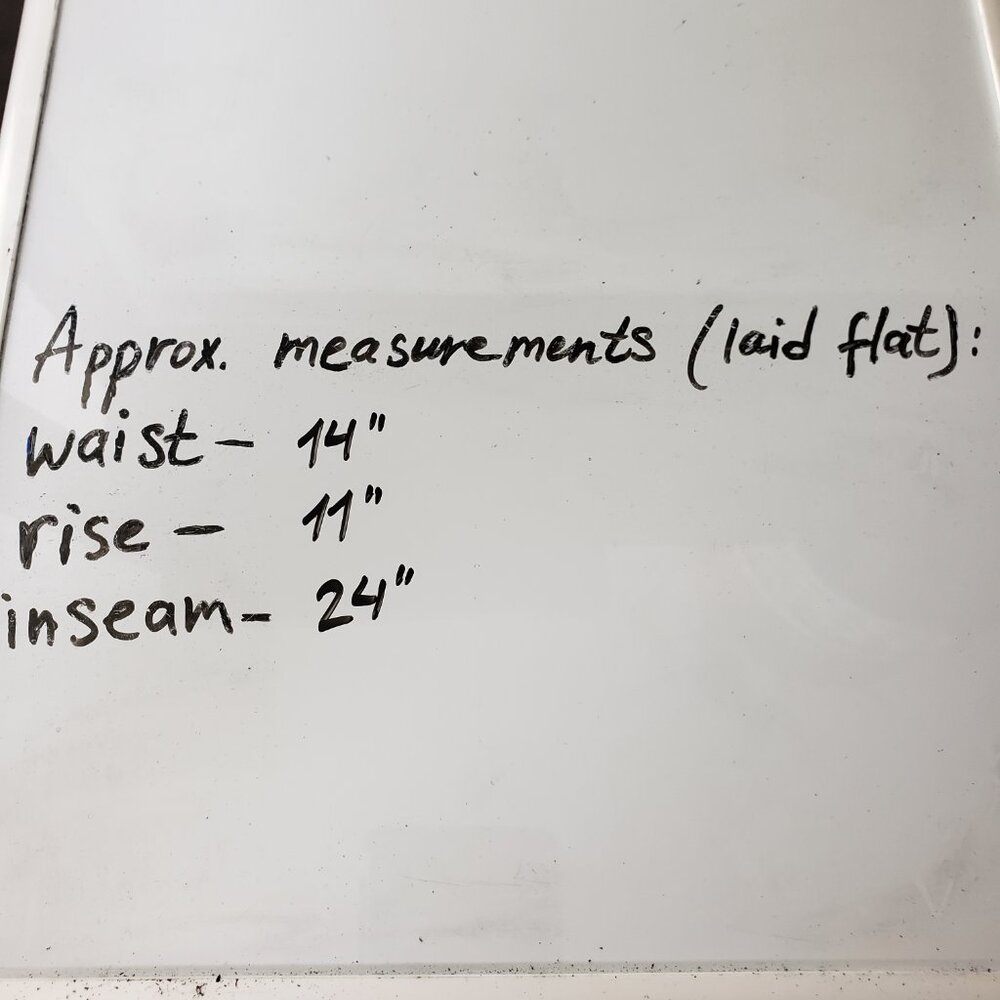 Approx. measurements (laid flat):
waist - 14"
rise - 11"
inseam - 24"